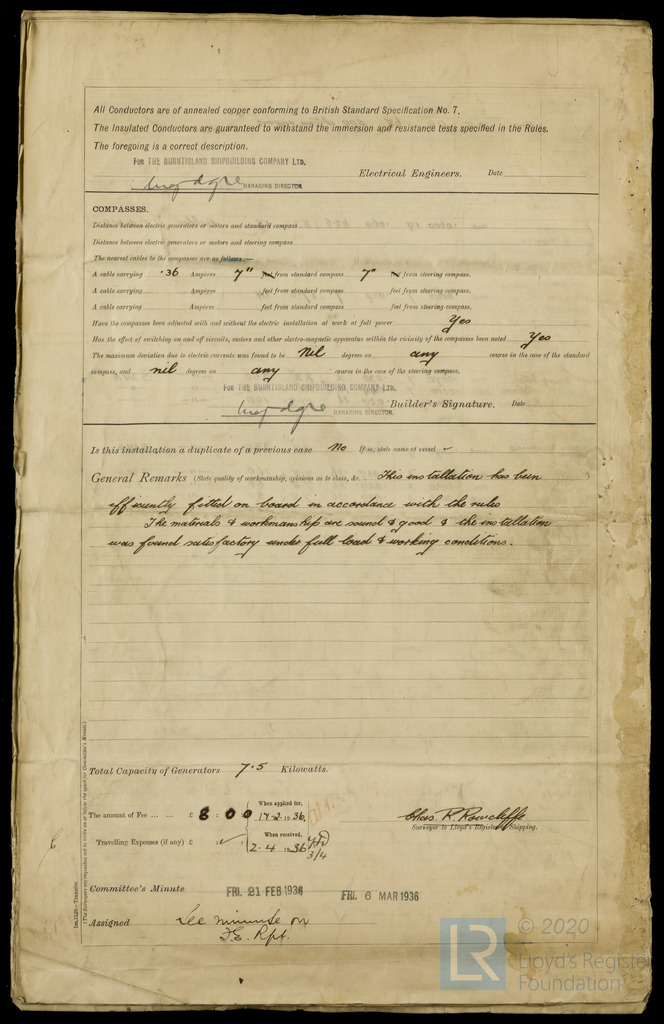 All Conductors are of annealed copper conforming to British Standard Specification No. 7.
The Insulated Conductors are guaranteed to withstand the immersion and resistance tests specified in the Rules.
The foregoing is a correct description.
FOR THE BURNTISLAND SHIPBUILDING COMPANY LTD.
MANAGING DIRECTOR. Electrical Engineers. Date
COMPASSES.
Distance between electric generators or motors and standard compass
Distance between electric generators or motors and steering compass
The nearest cables to the compasses are as follows:—
A cable carrying .36 Ampères 7" from standard compass 7" from steering compass.
A cable carrying Ampères feet from standard compass feet from steering compass.
A cable carrying Ampères feet from standard compass feet from steering compass.
Have the compasses been adjusted with and without the electric installation at work at full power Yes
Has the effect of switching on and off circuits, motors and other electro-magnetic apparatus within the vicinity of the compasses been noted Yes
The maximum deviation due to electric currents was found to be Nil degrees on any course in the case of the standard
compass, and nil degrees on any course in the case of the steering compass.
FOR THE BURNTISLAND SHIPBUILDING COMPANY LTD.
MANAGING DIRECTOR. Builder's Signature. Date
Is this installation a duplicate of a previous case No If so, state name of vessel
General Remarks (State quality of workmanship, opinions as to class, &c. This installation has been )
efficiently fitted on board in accordance with the rules
The materials & workmanship are sound & good & the installation
was found satisfactory under full load & working conditions.
Total Capacity of Generators 7.5 Kilowatts.
The amount of Fee ... ... £ 8 : 0 0 When applied for, 14-2-1936
Chas. R. Rowcliffe
Surveyor to Lloyd's Register of Shipping.
Travelling Expenses (if any) £ : : When received, 2-4 1936
3/4
Committee's Minute FRI. 21 FEB 1936 FRI. 6 MAR 1936
Assigned See minute on
F.E. Rpt.
LR © 2020
Lloyd's Register
Foundation